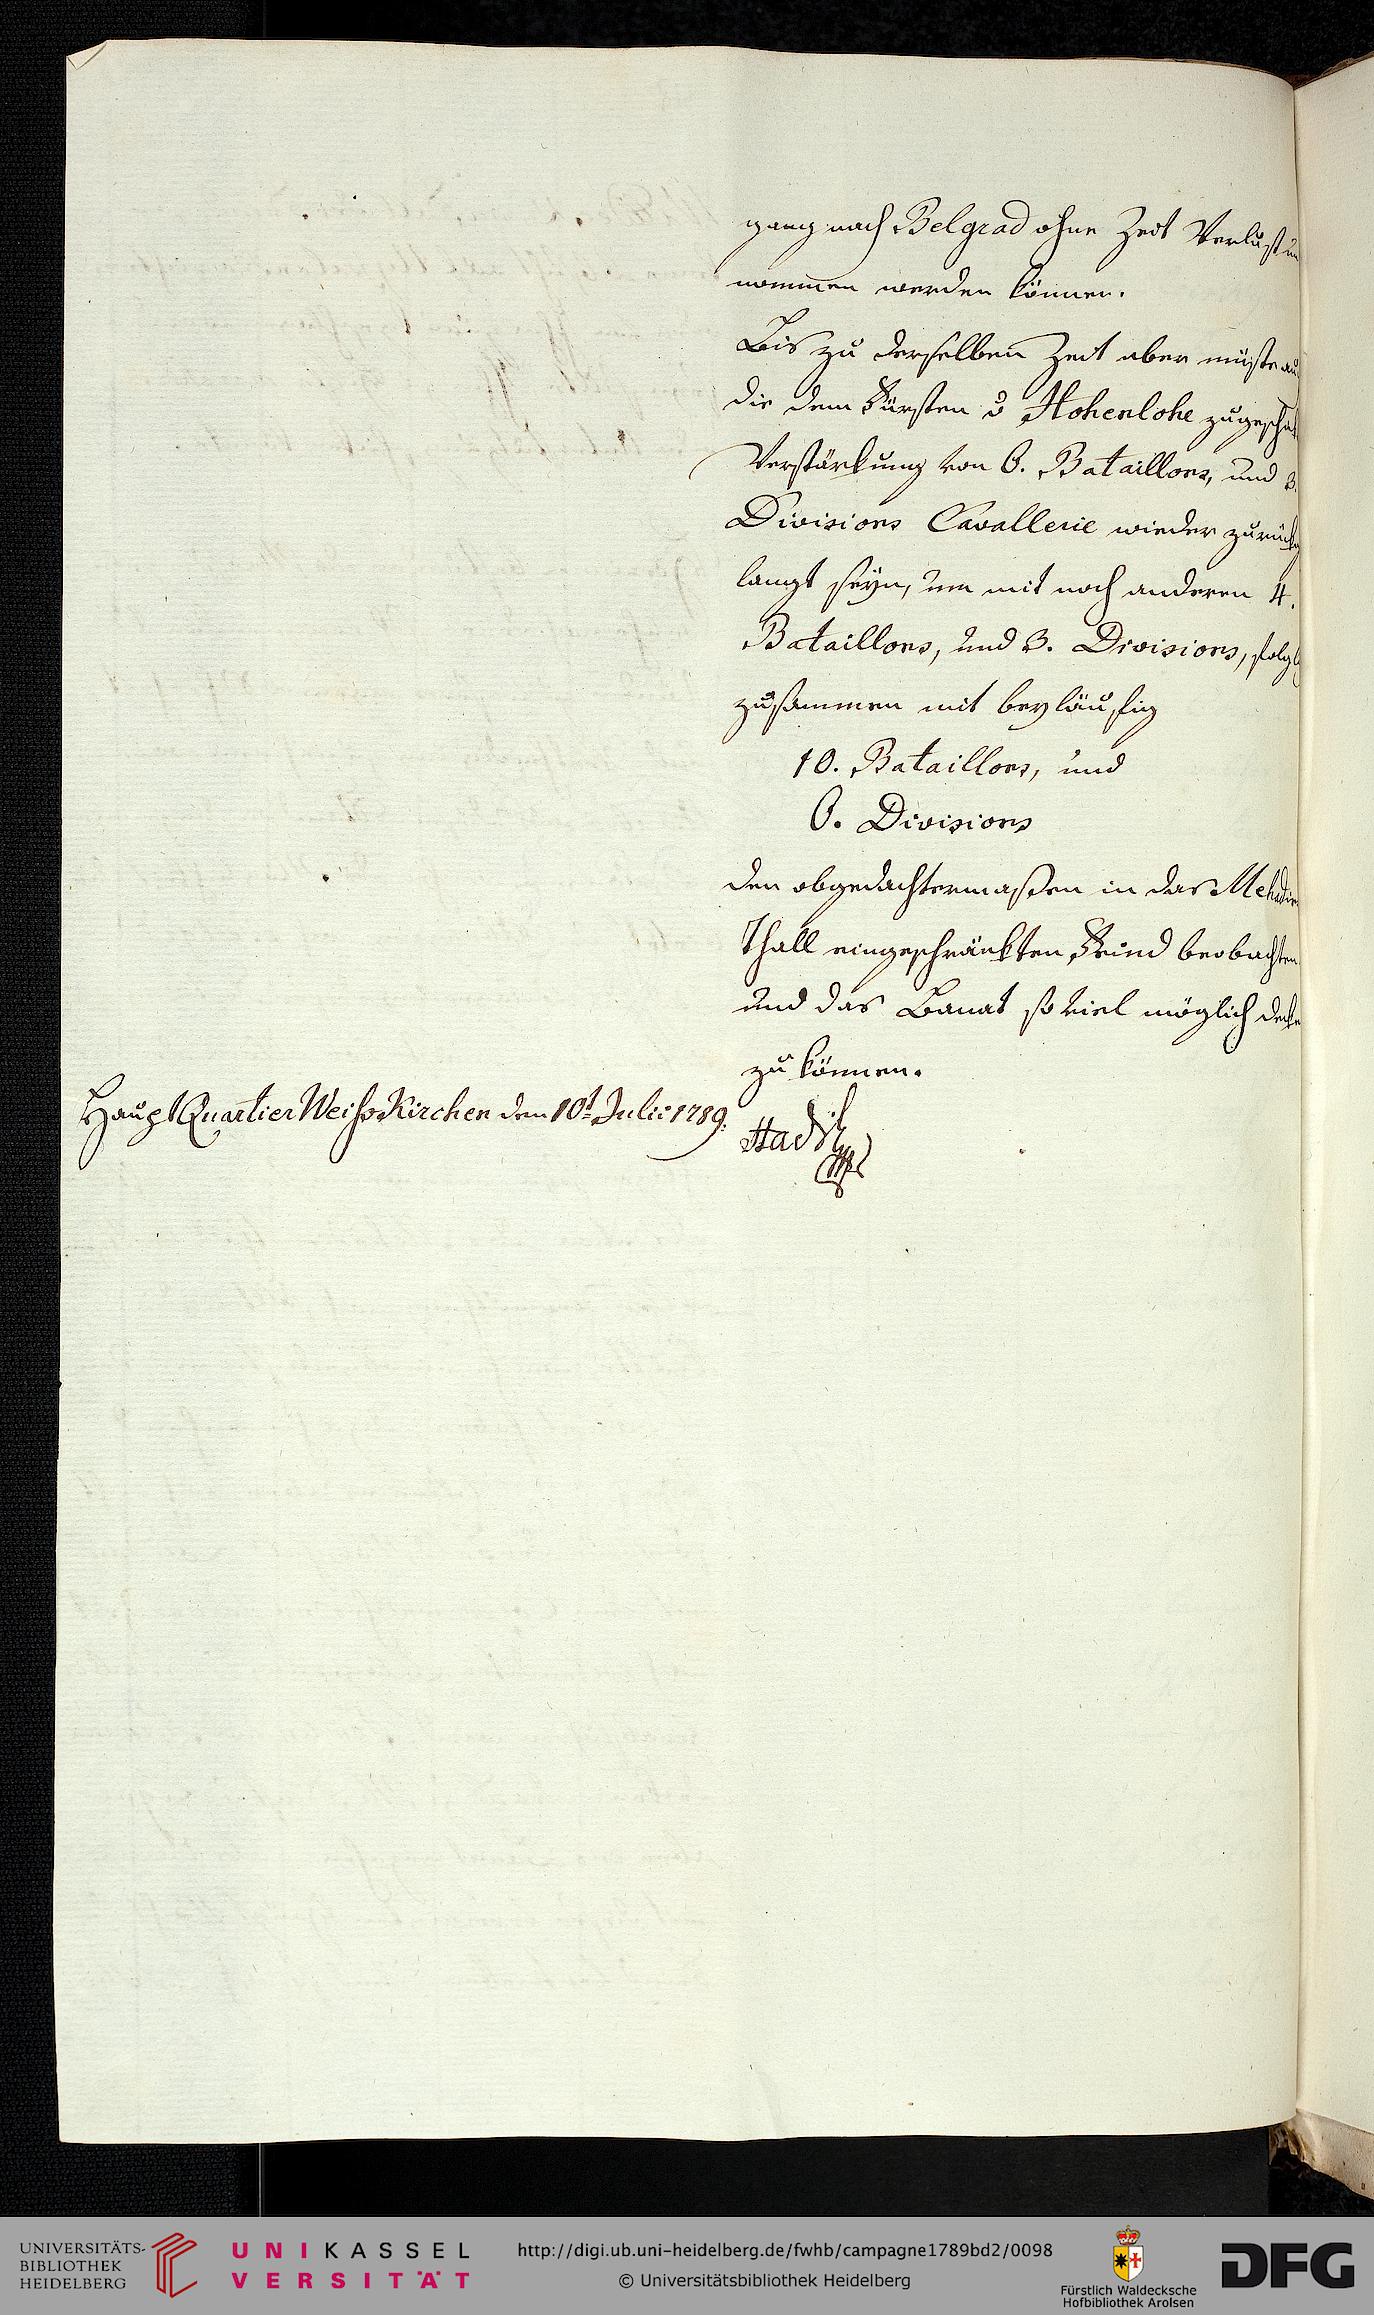 gang nach Belgrad ohne Zeit Verlust
nommen werden können.
Bis zu derselben Zeit aber müste
die dem Fürsten v Hohenlohe
Verstärkung von 6. Bataillons, und 3.
Divisions Cavallerie wieder
langt seyn, um mit noch anderen 4.
Bataillons, und 3. Divisions,
zusammen mit beyläufig
10. Bataillons, und
6. Divisions
den obgedachtermaßen in das
Thall eingeschränkten Feind beobachten
und das Banat so viel möglich
zu können.
Haupt Quartier Weiss Kirchen den 10t Julii 1789.
Hadik
UNIVERSITÄTS-
BIBLIOTHEK
HEIDELBERG
UNIKASSEL
VERSITÄT
http://digi.ub.uni-heidelberg.de/fwhb/campagne1789bd2/0098
© Universitätsbibliothek Heidelberg
Fürstlich Waldecksche
Hofbibliothek Arolsen
DFG